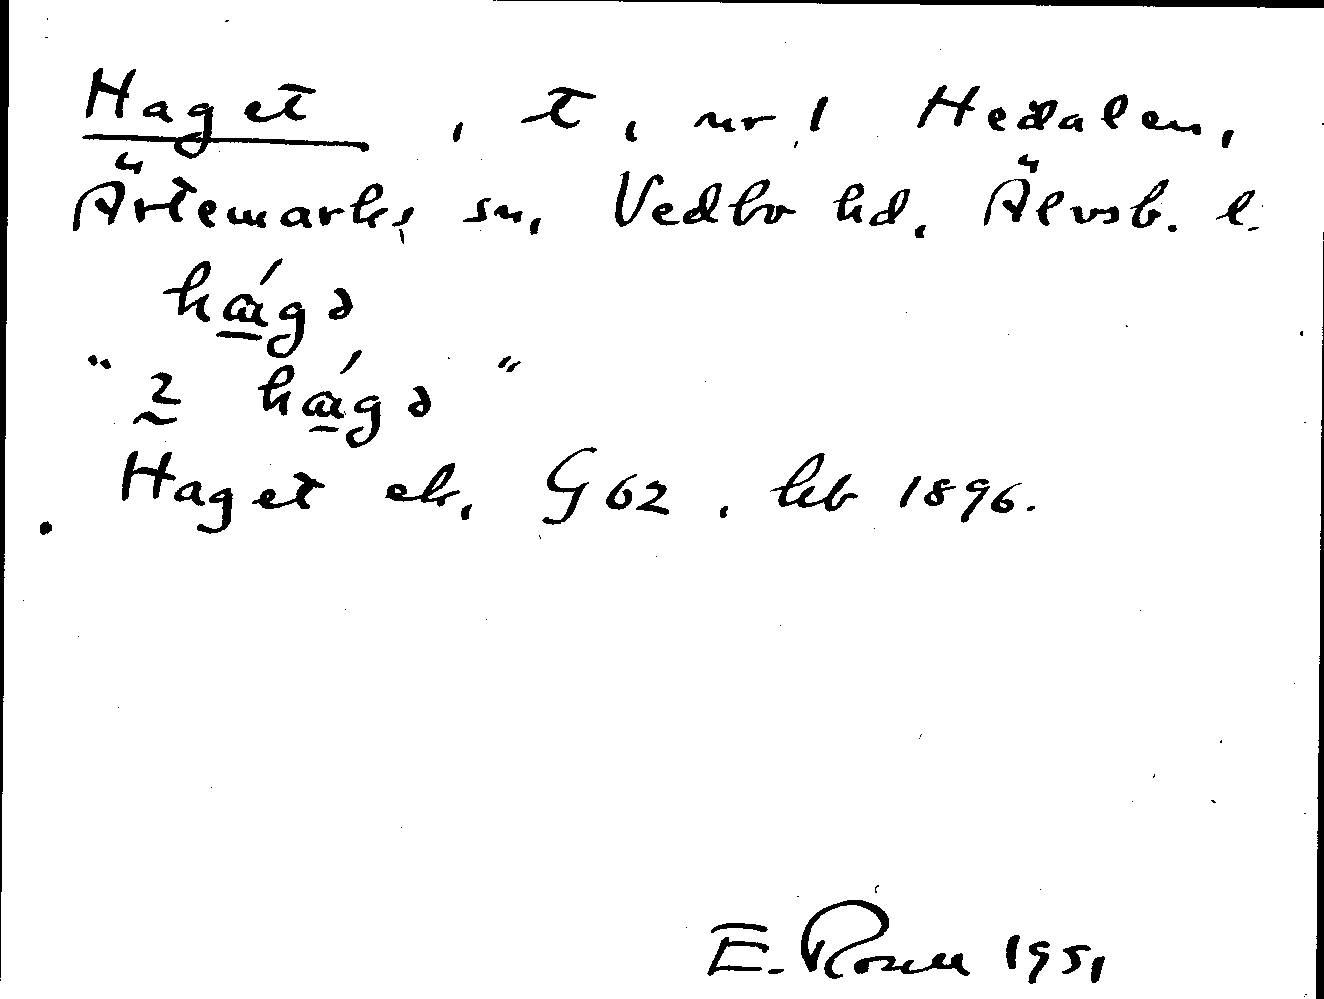 Haget, t, nr 1 Hedalen,
Ärtemarks sn, Vedbo hd, Älvsb. l.
há̱gə
"2 há̱gə"
Haget ek. G 62. hb 1896.
E. Rosell 1951